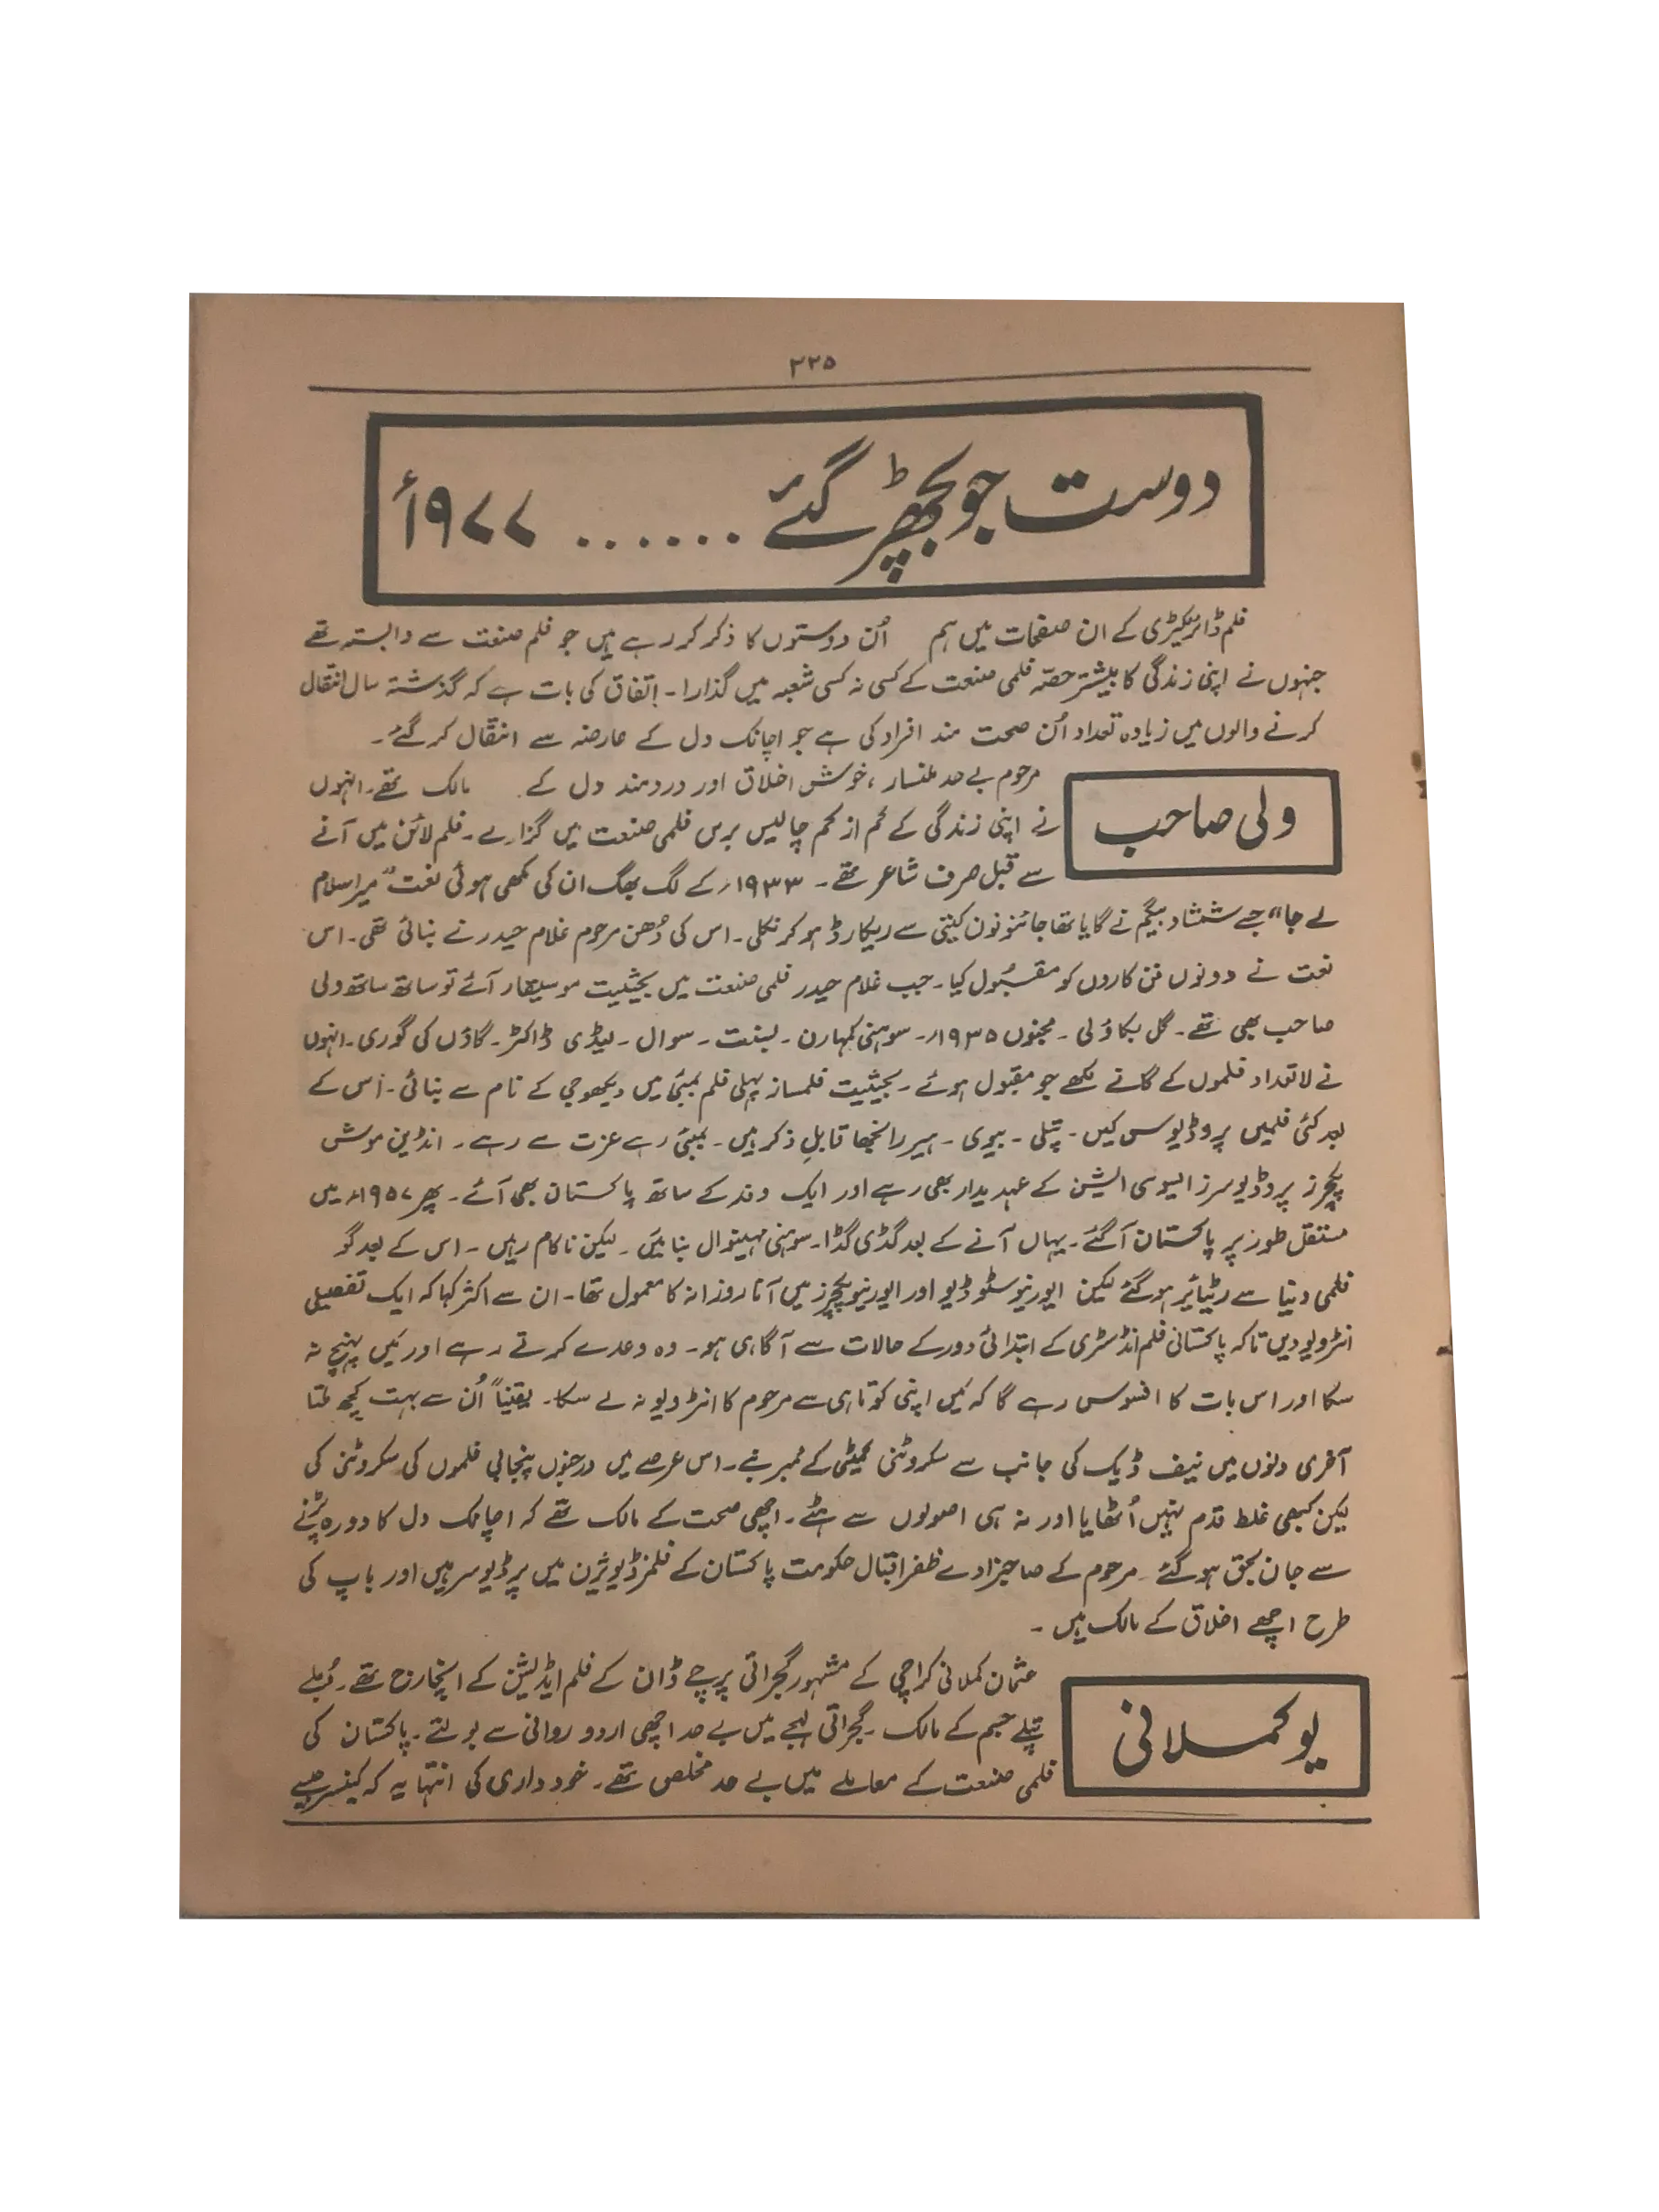 ۲۲۵
دوست جو بچھڑ گئے ...... ۱۹۷۷ء
فلم ڈائریکٹری کے ان صفحات میں ہم اُن دوستوں کا ذکر کر رہے ہیں جو فلم صنعت سے وابستہ تھے
جنہوں نے اپنی زندگی کا بیشتر حصّہ فلمی صنعت کے کسی نہ کسی شعبہ میں گذارا۔ اتفاق کی بات ہے کہ گذشتہ سال انتقال
کرنے والوں میں زیادہ تعداد اُن صحت مند افراد کی ہے جو اچانک دل کے عارضہ سے انتقال کر گئے۔
ولی صاحب
مرحوم بے حد ملنسار، خوش اخلاق اور دردمند دل کے مالک تھے۔ انہوں
نے اپنی زندگی کے کم از کم چالیس برس فلمی صنعت میں گزارے۔ فلم لائن میں آنے
سے قبل صرف شاعر تھے۔ ۱۹۳۳ء کے لگ بھگ ان کی لکھی ہوئی نعت "میرا سلام
لے جا" جسے شمشاد بیگم نے گایا تھا جائنوفون کمپنی سے ریکارڈ ہو کر نکلی۔ اس کی دُھن مرحوم غلام حیدر نے بنائی تھی۔ اس
نعت نے دونوں فن کاروں کو مقبُول کیا۔ جب غلام حیدر فلمی صنعت میں بحیثیت موسیقار آئے تو ساتھ ساتھ ولی
صاحب بھی تھے۔ گل بکاؤلی۔ مجنوں ۱۹۳۵ء۔ سوہنی کمہارن۔ بسنت۔ سوال۔ لیڈی ڈاکٹر۔ گاؤں کی گوری۔ انہوں
نے لاتعداد فلموں کے گانے لکھے جو مقبول ہوئے۔ بحیثیت فلمساز پہلی فلم بمبئی میں دیکھو جی کے نام سے بنائی۔ اُس کے
بعد کئی فلمیں پروڈیوس کیں۔ پتلی۔ بیوی۔ ہیر رانجھا قابلِ ذکر ہیں۔ بمبئی رہے عزت سے رہے۔ انڈین موشن
پکچرز پروڈیوسرز ایسوسی ایشن کے عہدیدار بھی رہے اور ایک وفد کے ساتھ پاکستان بھی آئے۔ پھر ۱۹۵۷ء میں
مستقل طور پر پاکستان آ گئے۔ یہاں آنے کے بعد گڈی گڈا۔ سوہنی مہینوال بنائیں۔ لیکن ناکام رہیں۔ اس کے بعد گو
فلمی دنیا سے ریٹائر ہو گئے لیکن ایورنیو سٹوڈیو اور ایورنیو پکچرز میں آنا روزانہ کا معمول تھا۔ ان سے اکثر کہا کہ ایک تفصیلی
انٹرویو دیں تاکہ پاکستانی فلم انڈسٹری کے ابتدائی دور کے حالات سے آگاہی ہو۔ وہ وعدے کرتے رہے اور میں پہنچ نہ
سکا اور اس بات کا افسوس رہے گا کہ میں اپنی کوتاہی سے مرحوم کا انٹرویو نہ لے سکا۔ یقیناً اُن سے بہت کچھ ملتا
آخری دنوں میں نیف ڈیک کی جانب سے سکروٹنی کمیٹی کے ممبر بنے۔ اس عرصے میں درجنوں پنجابی فلموں کی سکروٹنی کی
لیکن کبھی غلط قدم نہیں اُٹھایا اور نہ ہی اصولوں سے ہٹے۔ اچھی صحت کے مالک تھے کہ اچانک دل کا دورہ پڑنے
سے جان بحق ہو گئے۔ مرحوم کے صاحبزادے ظفر اقبال حکومت پاکستان کے فلمز ڈیویژن میں پرڈیوسر ہیں اور باپ کی
طرح اچھے اخلاق کے مالک ہیں۔
یو کملانی
عثمان کملانی کراچی کے مشہور گجراتی پرچے ڈان کے فلم ایڈیشن کے انچارج تھے۔ دُبلے
پتلے جسم کے مالک۔ گجراتی لہجے میں بے حد اچھی اردو روانی سے بولتے۔ پاکستان کی
فلمی صنعت کے معاملے میں بے حد مخلص تھے۔ خود داری کی انتہا یہ کہ کینسر جیسے